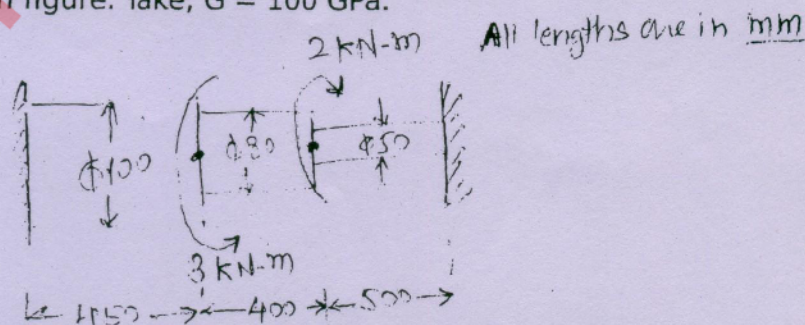 figure. Take, G = 100 GPa.
2 KN-m
All lengths are in mm
ϕ100
ϕ80
ϕ50
3 KN-m
450
400
500